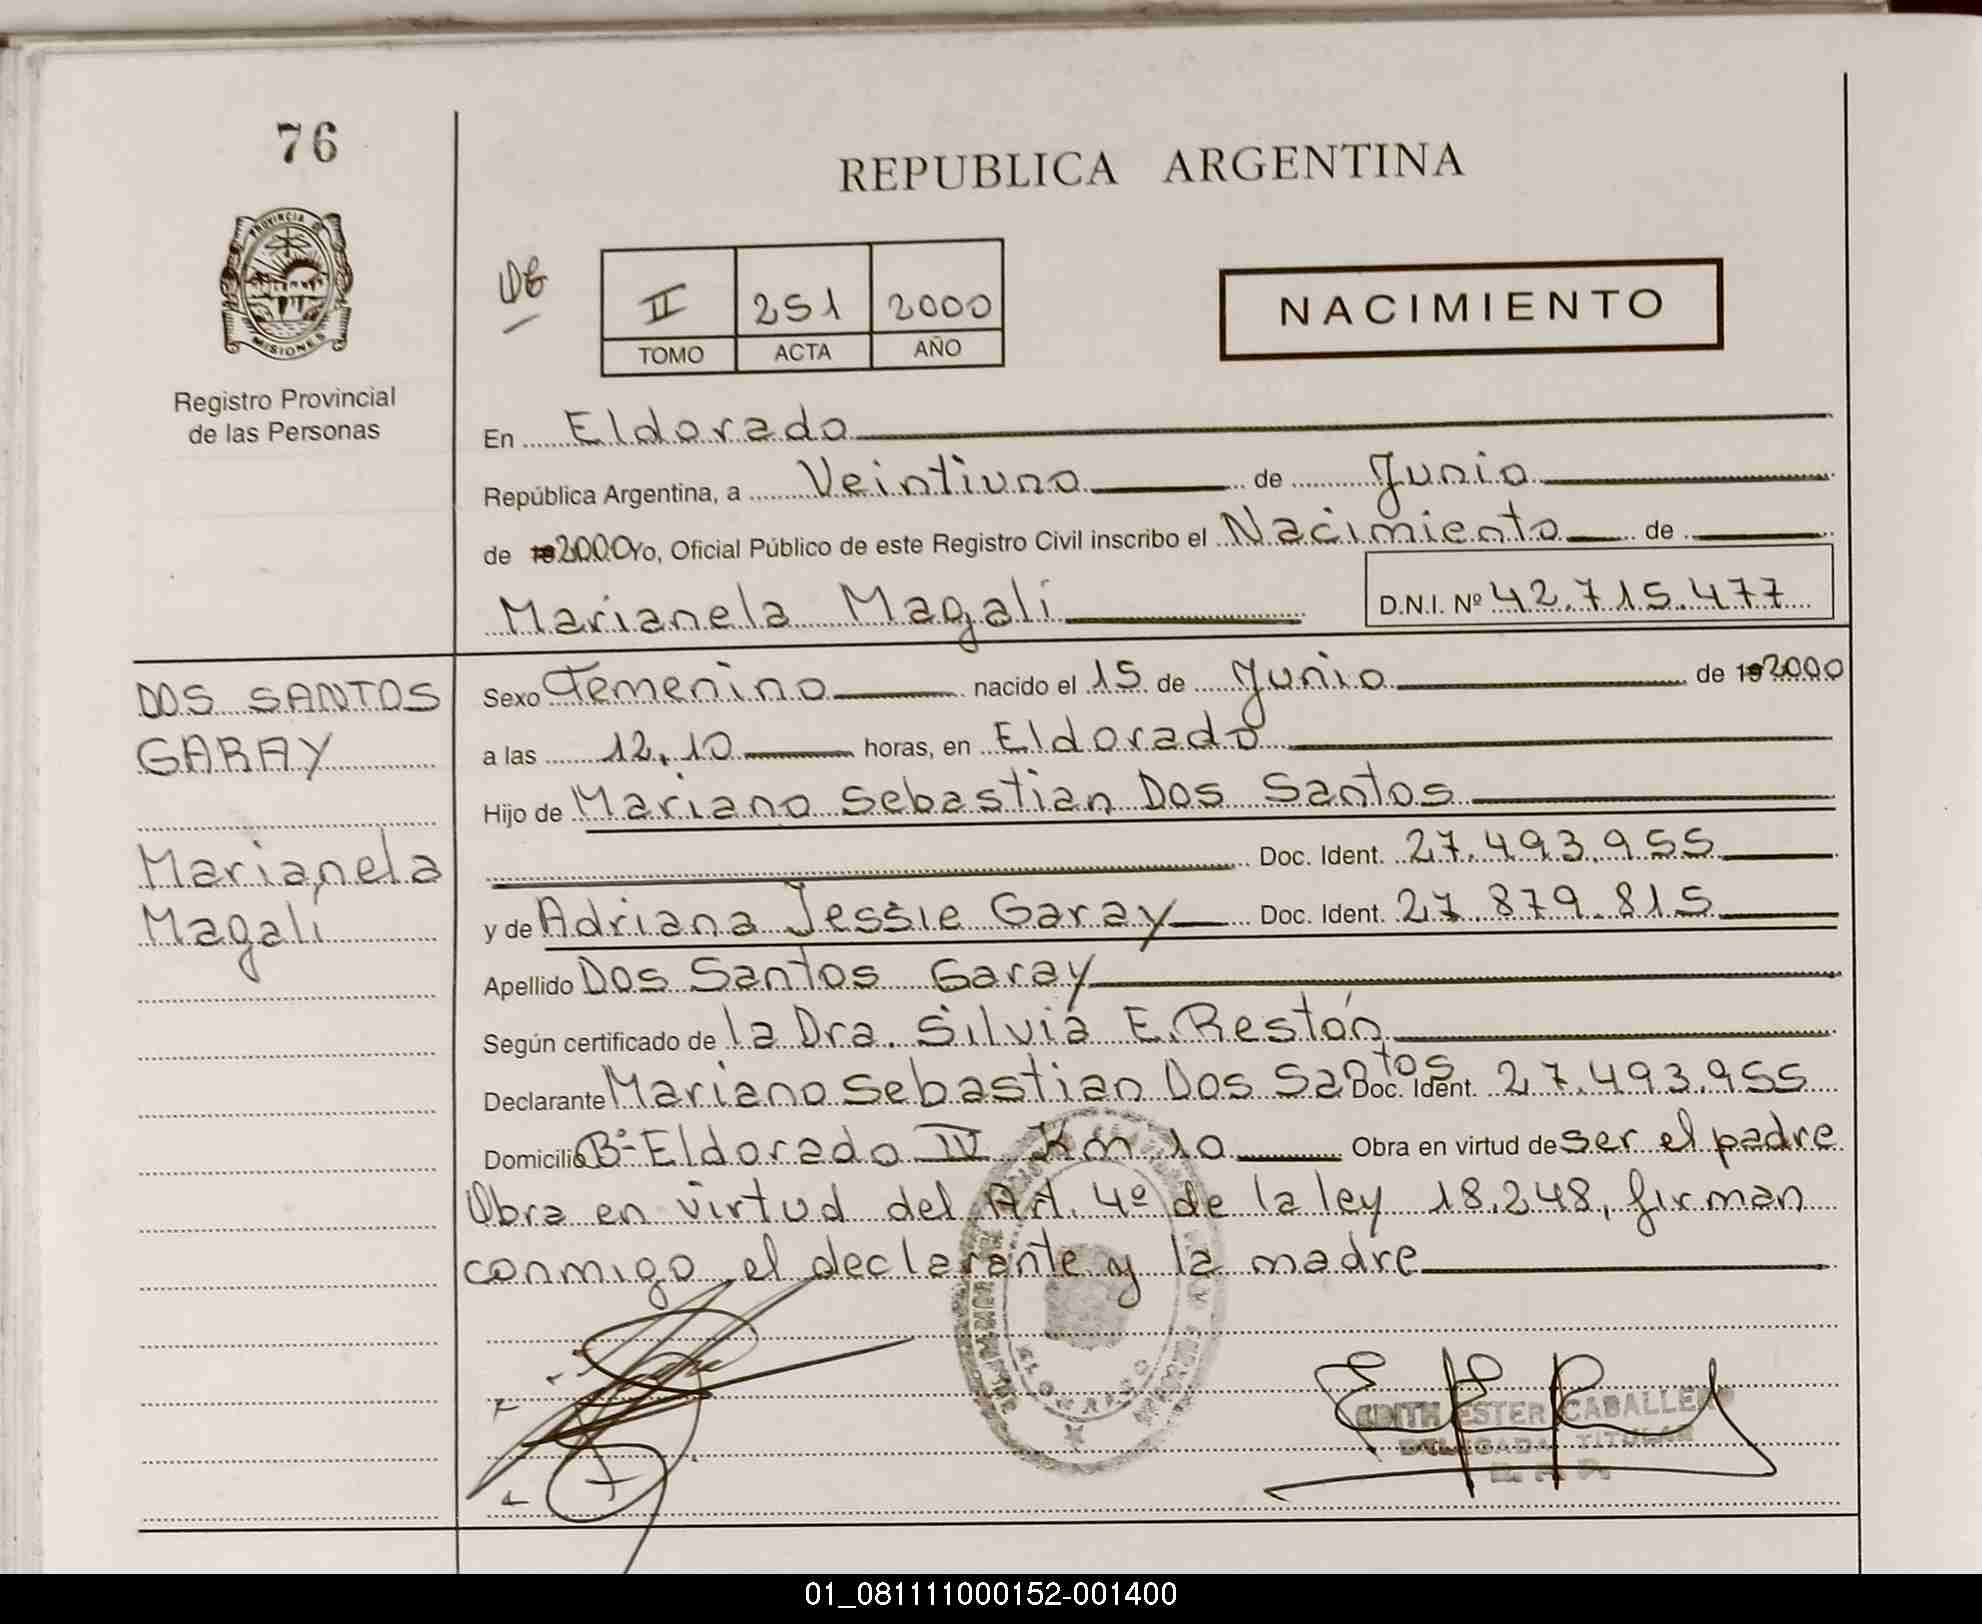 76
REPUBLICA ARGENTINA
PROVINCIA DE
MISIONES
Registro Provincial
de las Personas
II 251 2000
TOMO ACTA AÑO
NACIMIENTO
En Eldorado
República Argentina, a Veintiuno de Junio
de 2000 Yo, Oficial Público de este Registro Civil inscribo el Nacimiento de
Marianela Magali D.N.I. Nº 42.715.477
DOS SANTOS
GARAY
Marianela
Magali
Sexo Femenino nacido el 15 de Junio de 2000
a las 12,10 horas, en Eldorado
Hijo de Mariano Sebastian Dos Santos
Doc. Ident. 27.493.955
y de Adriana Jessie Garay Doc. Ident. 27.879.815
Apellido Dos Santos Garay
Según certificado de la Dra. Silvia E. Restón
Declarante Mariano Sebastian Dos Santos Doc. Ident. 27.493.955
Domicilio Bº Eldorado IV Km 10 Obra en virtud de ser el padre
Obra en virtud del Art. 4º de la ley 18.248, firman
conmigo el declarante y la madre
ELDORADO
EDITH ESTER CABALLERO
DELEGADA TITULAR
01_081111000152-001400